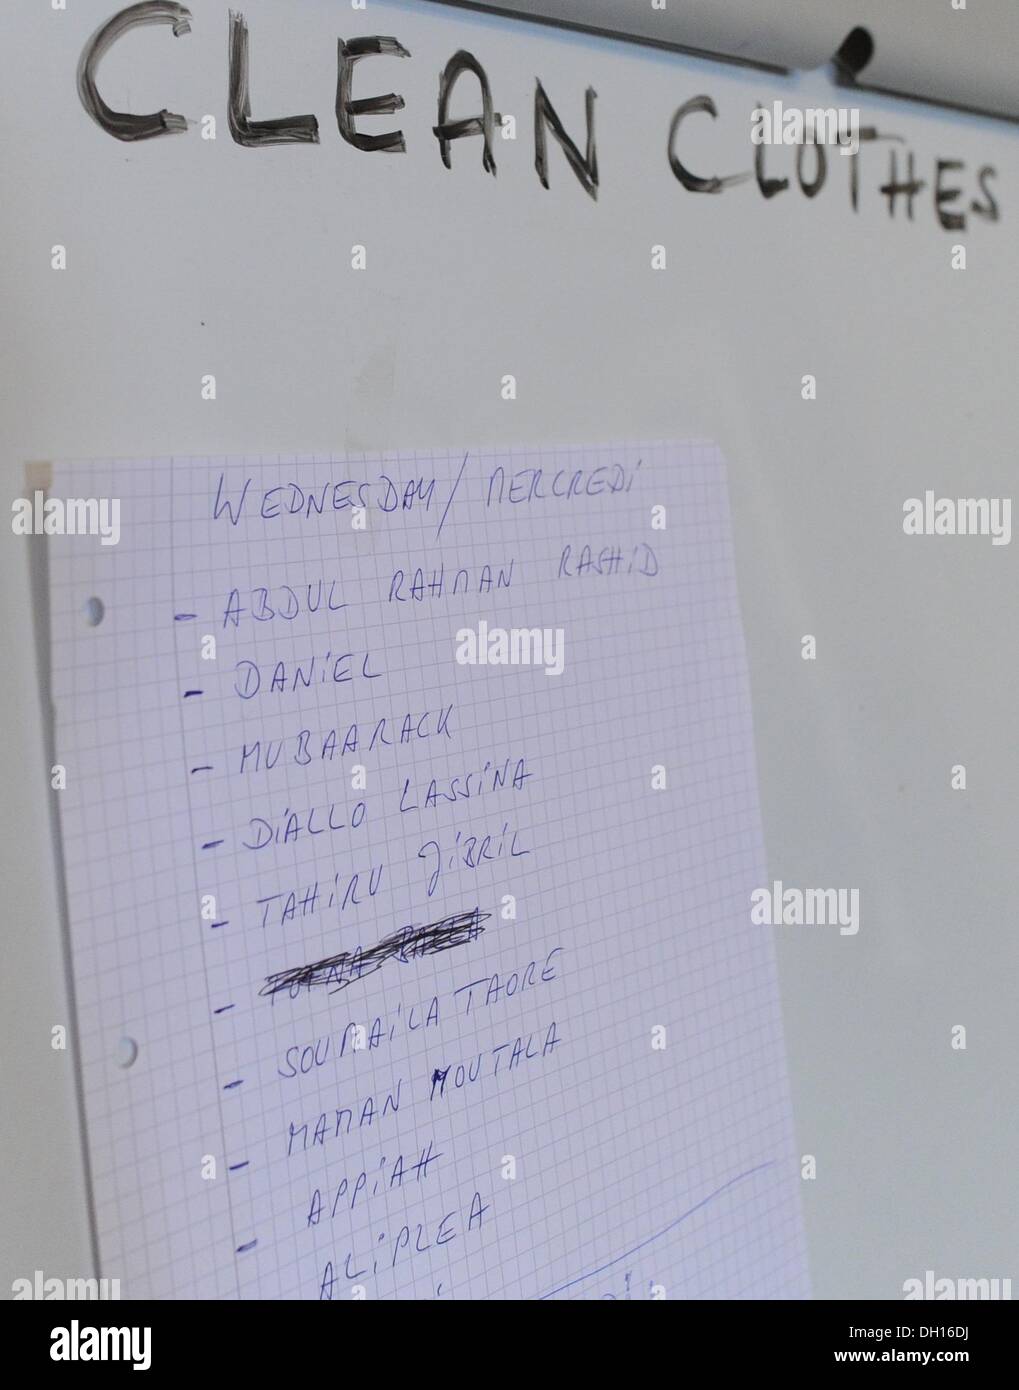 CLEAN CLOTHES
WEDNESDAY / MERCREDi
- ABDUL RAHMAN RASHiD
- DANiEL
- MUBAARACK
- DiALLO LASSiNA
- TAHiRU JiBRiL
-
- SOUMAiLA TAORE
- MAMAN MOUTALA
- APPiAH
ALiPLEA
alamy
alamy stock photo
DH16DJ
www.alamy.com